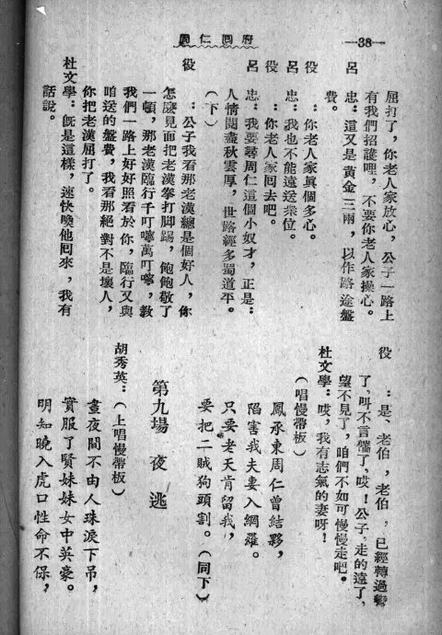 周仁回府
—38—
屈打了，你老人家放心，公子一路上
有我們招護哩，不要你老人家操心。
呂　忠：這又是黃金三兩，以作路途盤
費。
役　　：你老人家眞個多心。
呂　忠：我也不能遠送衆位。
役　　：你老人家囘去吧。
呂　忠：我要尋周仁這個小奴才，正是：
人情閱盡秋雲厚，世路經多蜀道平。
（下）
役　　：公子我看那老漢總是個好人，你
怎麼見面把老漢拳打脚踢，飽飽敬了
一頓，那老漢臨行千叮嚀萬叮嚀，教
我們一路上好好照看於你，臨行又與
咱送的盤費，我看那絕對不是壞人，
你把老漢屈打了。
杜文學：旣是這樣，速快喚他囘來，我有
話說。
役　　：是、老伯，老伯，已經轉過彎
了，叫不言傳了，哎！公子，走的遠了，
望不見了，咱們不如可慢慢走吧。
杜文學：哎，我有志氣的妻呀！
（唱慢帶板）
鳳承東周仁曾結夥，
陷害我夫妻入網羅。
只要老天肯留我，
要把二賊狗頭割。（同下）
第九場　夜　逃
胡秀英：（上唱慢帶板）
晝夜間不由人珠淚下吊，
實服了賢妹妹女中英豪。
明知曉入虎口性命不保，